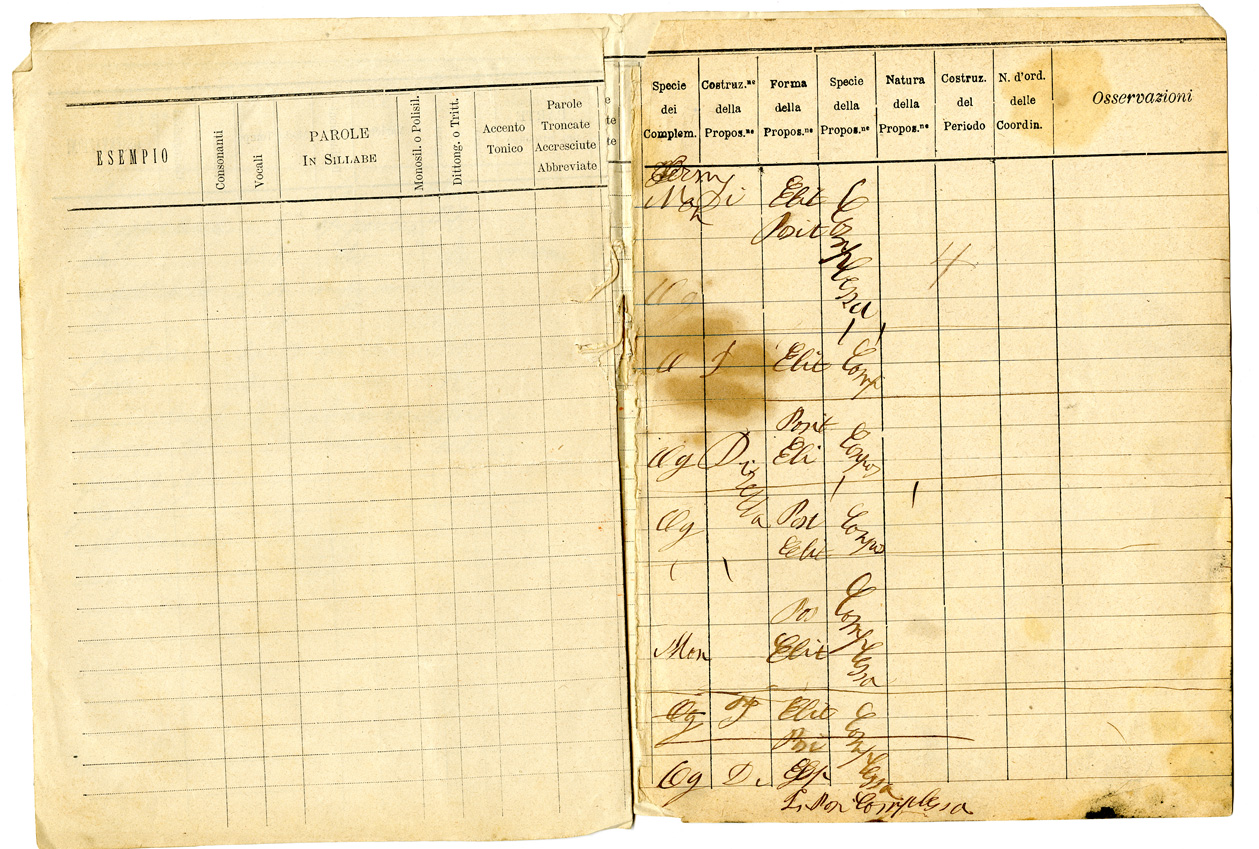 ESEMPIO
Consonanti
Vocali
PAROLE
IN SILLABE
Monosil. o Polisil.
Dittong. o Tritt.
Accento
Tonico
Parole
Troncate
Accresciute
Abbreviate
e
te
te
Specie
dei
Complem.
Costruz.ne
della
Propos.ne
Forma
della
Propos.ne
Specie
della
Propos.ne
Natura
della
Propos.ne
Costruz.
del
Periodo
N. d'ord.
delle
Coordin.
Osservazioni
Di Elit Complessa
Posit
4
Og
I Elit Comp
Posit
Og Diretta Eli Compos
Og Pos Compo
Elit
Pos Complessa
Mon Elit
Og Elit Complessa
Posi
Og Di
Complessa